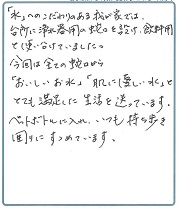 「水」へのこだわりのある我が家では、
台所に浄水器用の蛇口を設け、飲料用
と使い分けていました。
今回は全ての蛇口から
「おいしいお水」「肌に優しい水」と
とても満足した生活を送っています。
ペットボトルに入れ、いつも持ち歩き
周りにすすめています。